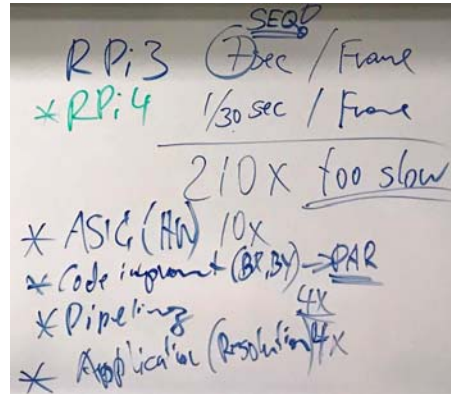 SEQ
RPi3 7sec / Frame
* RPi4 1/30 sec / Frame
210x too slow
* ASIC (HW) 10x
* Code improvment → PAR
* Pipeling 4x
* Application (Resolution) 4x